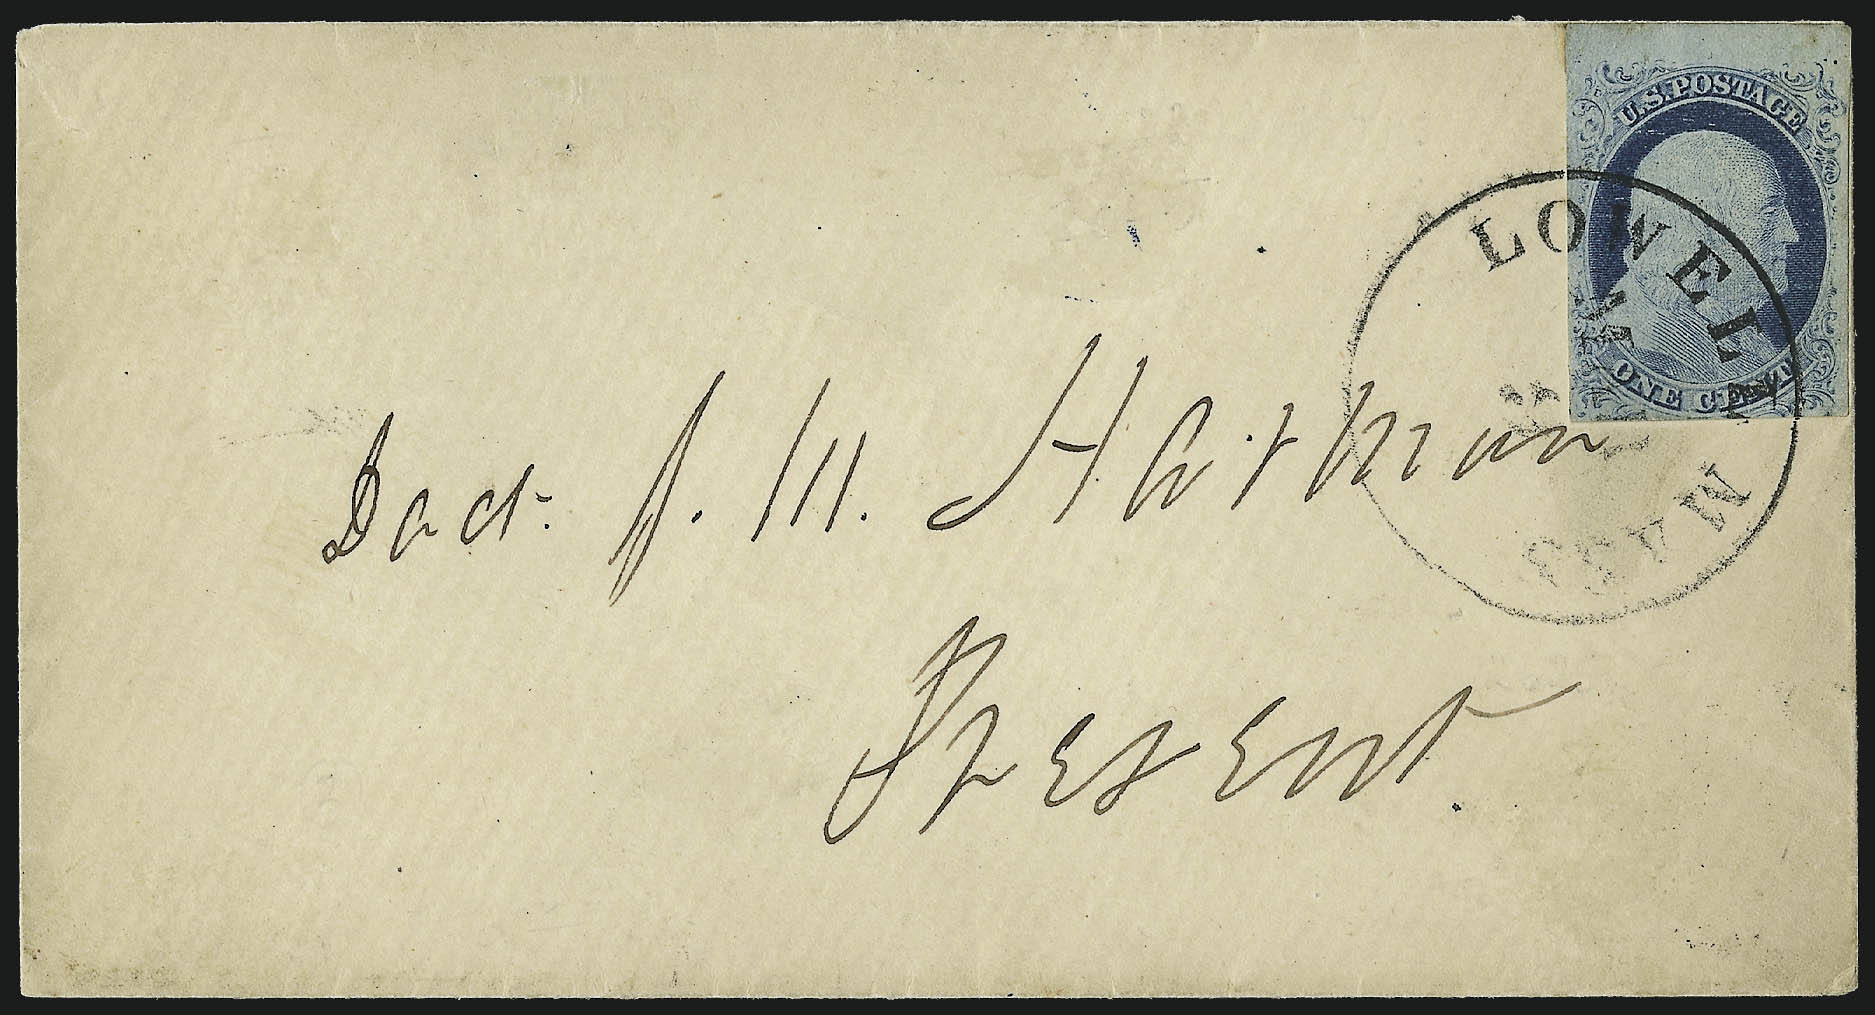 U.S. POSTAGE
ONE CENT
LOWELL
MASS
Doct. J. M.
Present.